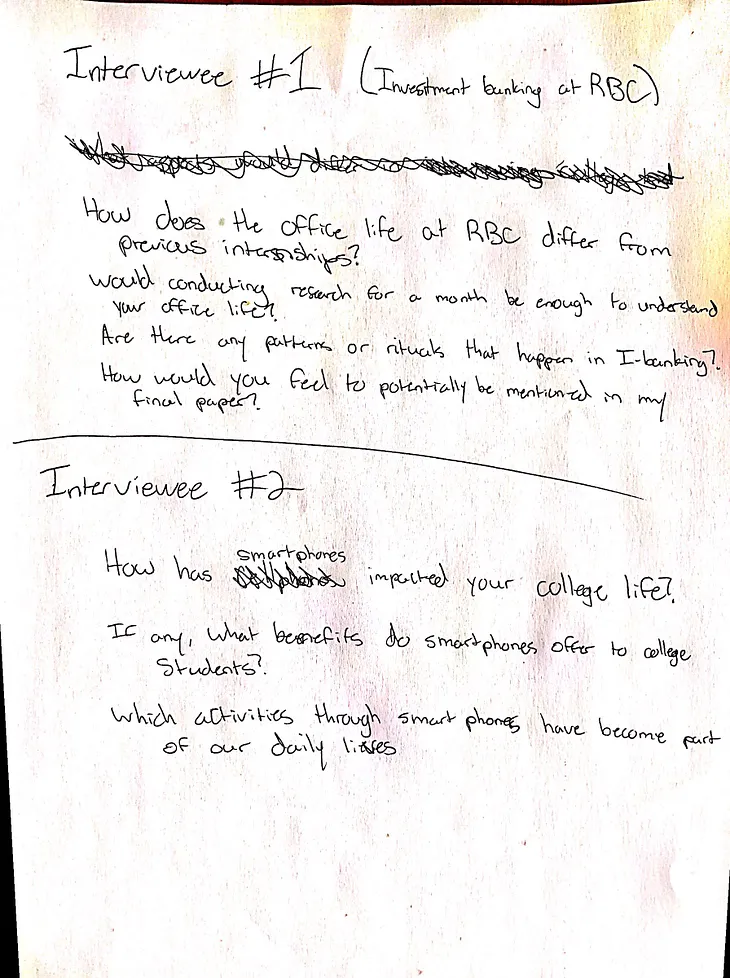 Interviewee #1 (Investment banking at RBC)
How does the office life at RBC differ from
previous internships?
Would conducting research for a month be enough to understand
your office life?
Are there any patterns or rituals that happen in I-banking?
How would you feel to potentially be mentioned in my
final paper?
Interviewee #2
smartphones
How has impacted your college life?
If any, what benefits do smartphones offer to college
students?
Which activities through smart phones have become part
of our daily lives